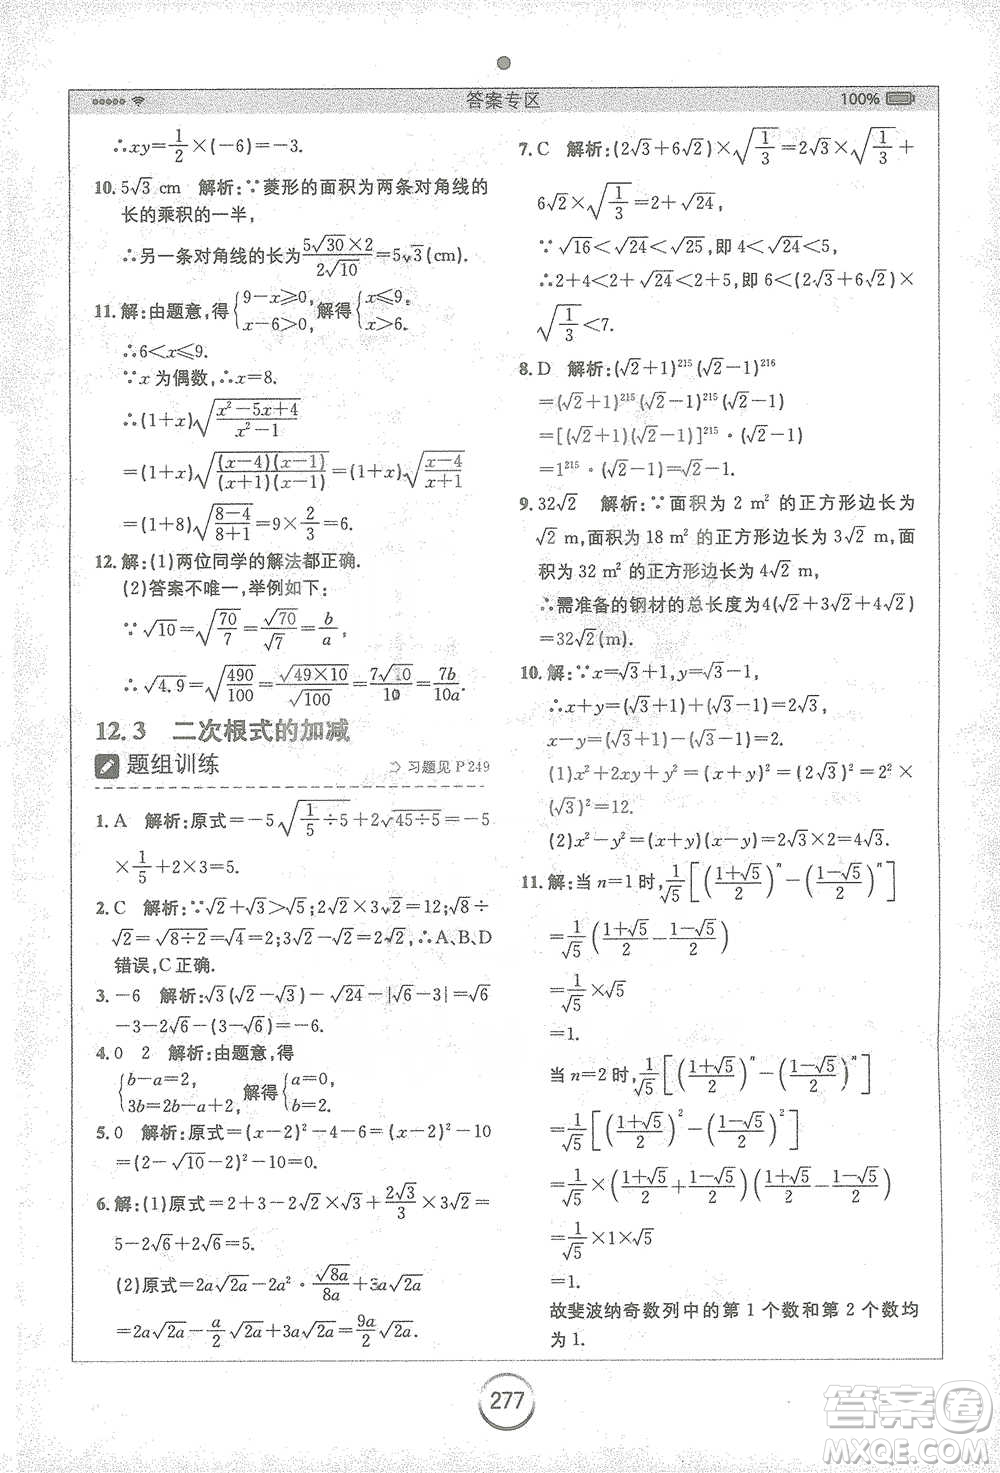 答案专区
100%
∴xy=1/2×(-6)=-3.
10. 5√3 cm 解析:∵菱形的面积为两条对角线的
长的乘积的一半,
∴另一条对角线的长为(5√30×2)/(2√10)=5√3(cm).
11. 解:由题意,得{9-x≥0, x-6>0, 解得{x≤9, x>6.
∴6<x≤9.
∵x为偶数,∴x=8.
∴(1+x)√((x²-5x+4)/(x²-1))
=(1+x)√((x-4)(x-1)/((x+1)(x-1)))=(1+x)√((x-4)/(x+1))
=(1+8)√((8-4)/(8+1))=9×2/3=6.
12. 解:(1)两位同学的解法都正确.
(2)答案不唯一,举例如下:
∵√10=√(70/7)=√70/√7=b/a,
∴√4.9=√(490/100)=√(49×10)/√100=7√10/10=7b/10a.
12.3 二次根式的加减
题组训练 习题见P249
1. A 解析:原式=-5√(1/5÷5)+2√(45÷5)=-5
×1/5+2×3=5.
2. C 解析:∵√2+√3>√5;2√2×3√2=12;√8÷
√2=√(8÷2)=√4=2;3√2-√2=2√2,∴A、B、D
错误,C正确.
3. -6 解析:√3(√2-√3)-√24-|√6-3|=√6
-3-2√6-(3-√6)=-6.
4. 0 2 解析:由题意,得
{b-a=2, 3b=2b-a+2, 解得{a=0, b=2.
5. 0 解析:原式=(x-2)²-4-6=(x-2)²-10
=(2-√10-2)²-10=0.
6. 解:(1)原式=2+3-2√2×√3+2√3/3×3√2=
5-2√6+2√6=5.
(2)原式=2a√2a-2a²·√8a/8a+3a√2a
=2a√2a-a/2√2a+3a√2a=9a/2√2a.
7. C 解析:(2√3+6√2)×√(1/3)=2√3×√(1/3)+
6√2×√(1/3)=2+√24,
∵√16<√24<√25,即4<√24<5,
∴2+4<2+√24<2+5,即6<(2√3+6√2)×
√(1/3)<7.
8. D 解析:(√2+1)²¹⁵(√2-1)²¹⁶
=(√2+1)²¹⁵(√2-1)²¹⁵(√2-1)
=[(√2+1)(√2-1)]²¹⁵·(√2-1)
=1²¹⁵·(√2-1)=√2-1.
9. 32√2 解析:∵面积为2 m²的正方形边长为
√2 m,面积为18 m²的正方形边长为3√2 m,
面积为32 m²的正方形边长为4√2 m,
∴需准备的钢材的总长度为4(√2+3√2+4√2)
=32√2(m).
10. 解:∵x=√3+1,y=√3-1,
∴x+y=(√3+1)+(√3-1)=2√3,
x-y=(√3+1)-(√3-1)=2.
(1)x²+2xy+y²=(x+y)²=(2√3)²=2²×
(√3)²=12.
(2)x²-y²=(x+y)(x-y)=2√3×2=4√3.
11. 解:当n=1时,1/√5[((1+√5)/2)ⁿ-((1-√5)/2)ⁿ]
=1/√5((1+√5)/2-(1-√5)/2)
=1/√5×√5
=1.
当n=2时,1/√5[((1+√5)/2)ⁿ-((1-√5)/2)ⁿ]
=1/√5[((1+√5)/2)²-((1-√5)/2)²]
=1/√5×((1+√5)/2+(1-√5)/2)((1+√5)/2-(1-√5)/2)
=1/√5×1×√5
=1.
故斐波纳奇数列中的第1个数和第2个数均
为1.
277
答案圈
MXQE.COM